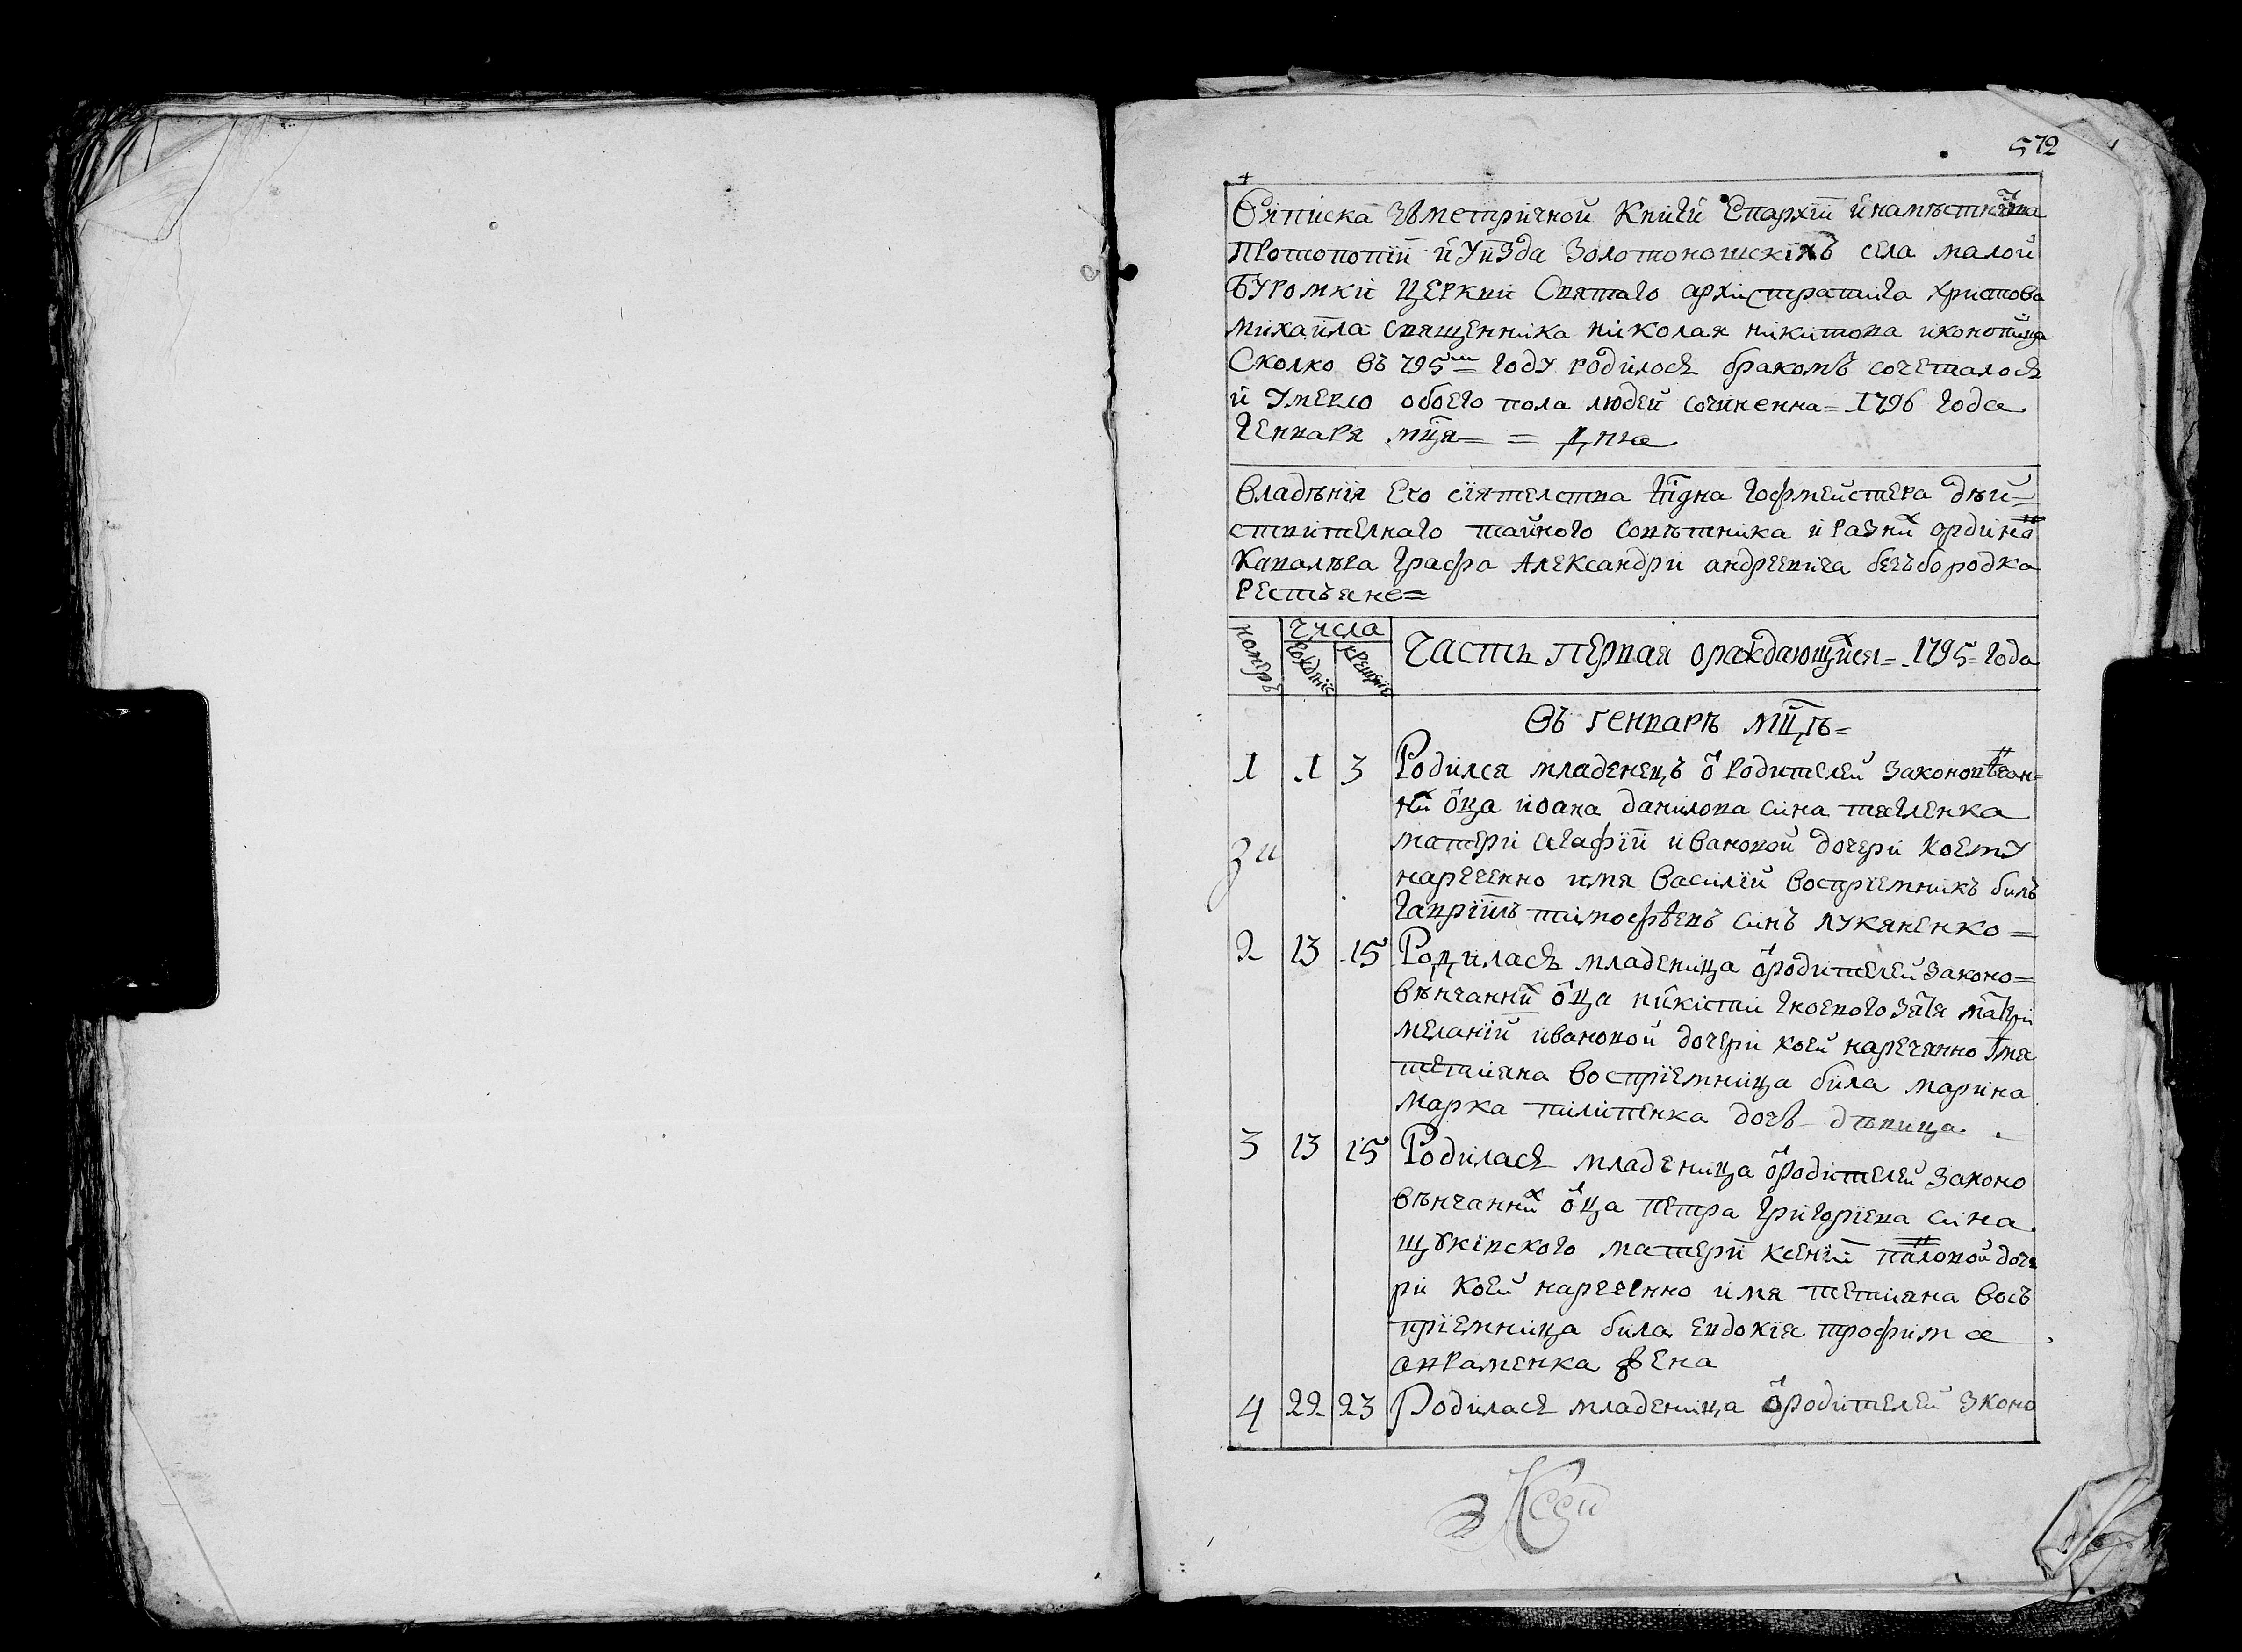 572
Випіска зъ метричной книги Епархіи и намѣстничества
Протопопіи и уизда Золотоношскихъ села малой
Буромки церкви Святаго архистратига христова
михаила священника николая никитова
Сколко въ 795м году родилося бракомъ сочеталося
и умерло обоего пола людей сочиненна = 1796 года
Генваря мця = = дня
Владѣнія Его сіятелства гофмейстера дѣй-
ствителного тайного совѣтника и разних ординов
Кавалѣра Графа Александри андреевича безъбородка
рестъяне=
номеръ
числа
рожденіе
крещеніе
Часть первая ораждающихся = 1795 = года
Въ генварѣ мцѣ =
1 1 3 Родился младенецъ от родителей законовѣнчан=
них оца иоана данилова сина
матери агафіи ивановой дочери коему
наречено имя василій воспріемникъ билъ
гавріилъ тимофѣевъ синъ лукяненко =
2 13 15 Родилася младеница от родителей законо=
вѣнчанних оца никити гноевого зятя матери
меланіи ивановой дочери коей наречанно имя
тетияна воспріемница била марина
марка пилипенка дочъ дѣвица
3 13 15 Родилася младеница от родителей законо
вѣнчанних оца петра григоріева сина
щукивского матери ксеніи павловой доче
ри коей нареченно имя тетияна вось
пріемница била евдокія трофима
авраменка жена
4 22 23 Родилася младеница от родителей зконо